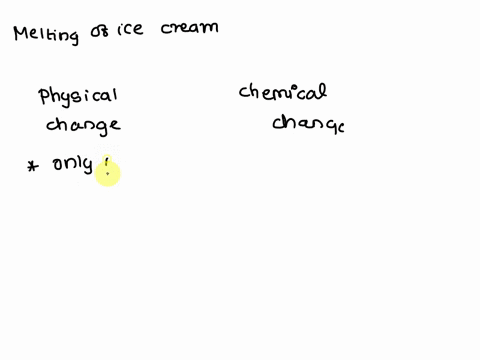 Melting of ice cream
Physical change
chemical change
* only